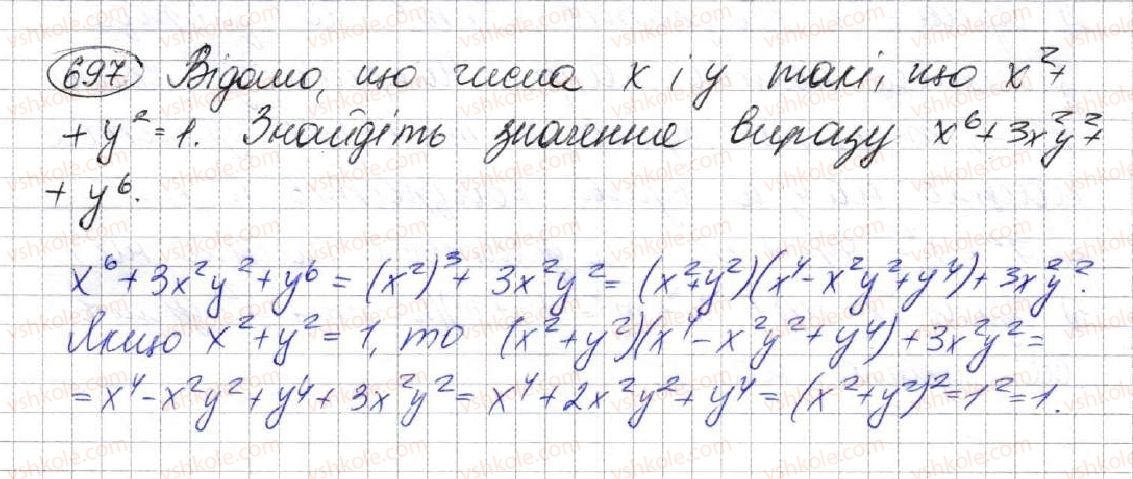 697 Відомо, що числа x і y такі, що x²+
+ y² = 1. Знайдіть значення виразу x⁶ + 3x²y² +
+ y⁶.
x⁶ + 3x²y² + y⁶ = (x²)³ + 3x²y² = (x²+y²)(x⁴ - x²y² + y⁴) + 3x²y².
Якщо x² + y² = 1, то (x² + y²)(x⁴ - x²y² + y⁴) + 3x²y² =
= x⁴ - x²y² + y⁴ + 3x²y² = x⁴ + 2x²y² + y⁴ = (x² + y²)² = 1² = 1.